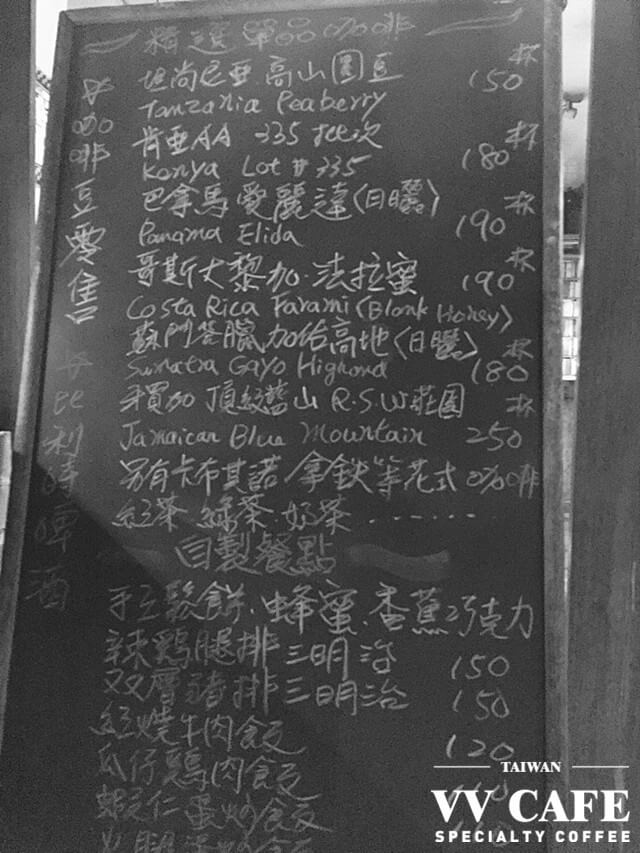 精選單品咖啡
坦尚尼亞高山圓豆 150 杯
Tanzania Peaberry
肯亞AA 335批次 180 杯
Kenya Lot # 335
巴拿馬愛麗達(日曬) 190 杯
Panama Elida
哥斯大黎加·法拉蜜 190 杯
Costa Rica Farami (Blank Honey)
蘇門答臘加佑高地(日曬) 180 杯
Sumatra Gayo Highond
牙買加頂級藍山 R.S.W莊園 250 杯
Jamaican Blue Mountain
另有卡布其諾 拿鐵等花式咖啡
紅茶 綠茶·奶茶 ......
自製餐點
手工鬆餅·蜂蜜·香蕉巧克力
辣鷄腿排三明治 150
双層豬排三明治 150
紅燒牛肉飯 120
瓜仔鷄肉飯
蝦仁蛋炒飯
咖啡豆零售
比利時啤酒
TAIWAN
VV CAFE
SPECIALTY COFFEE